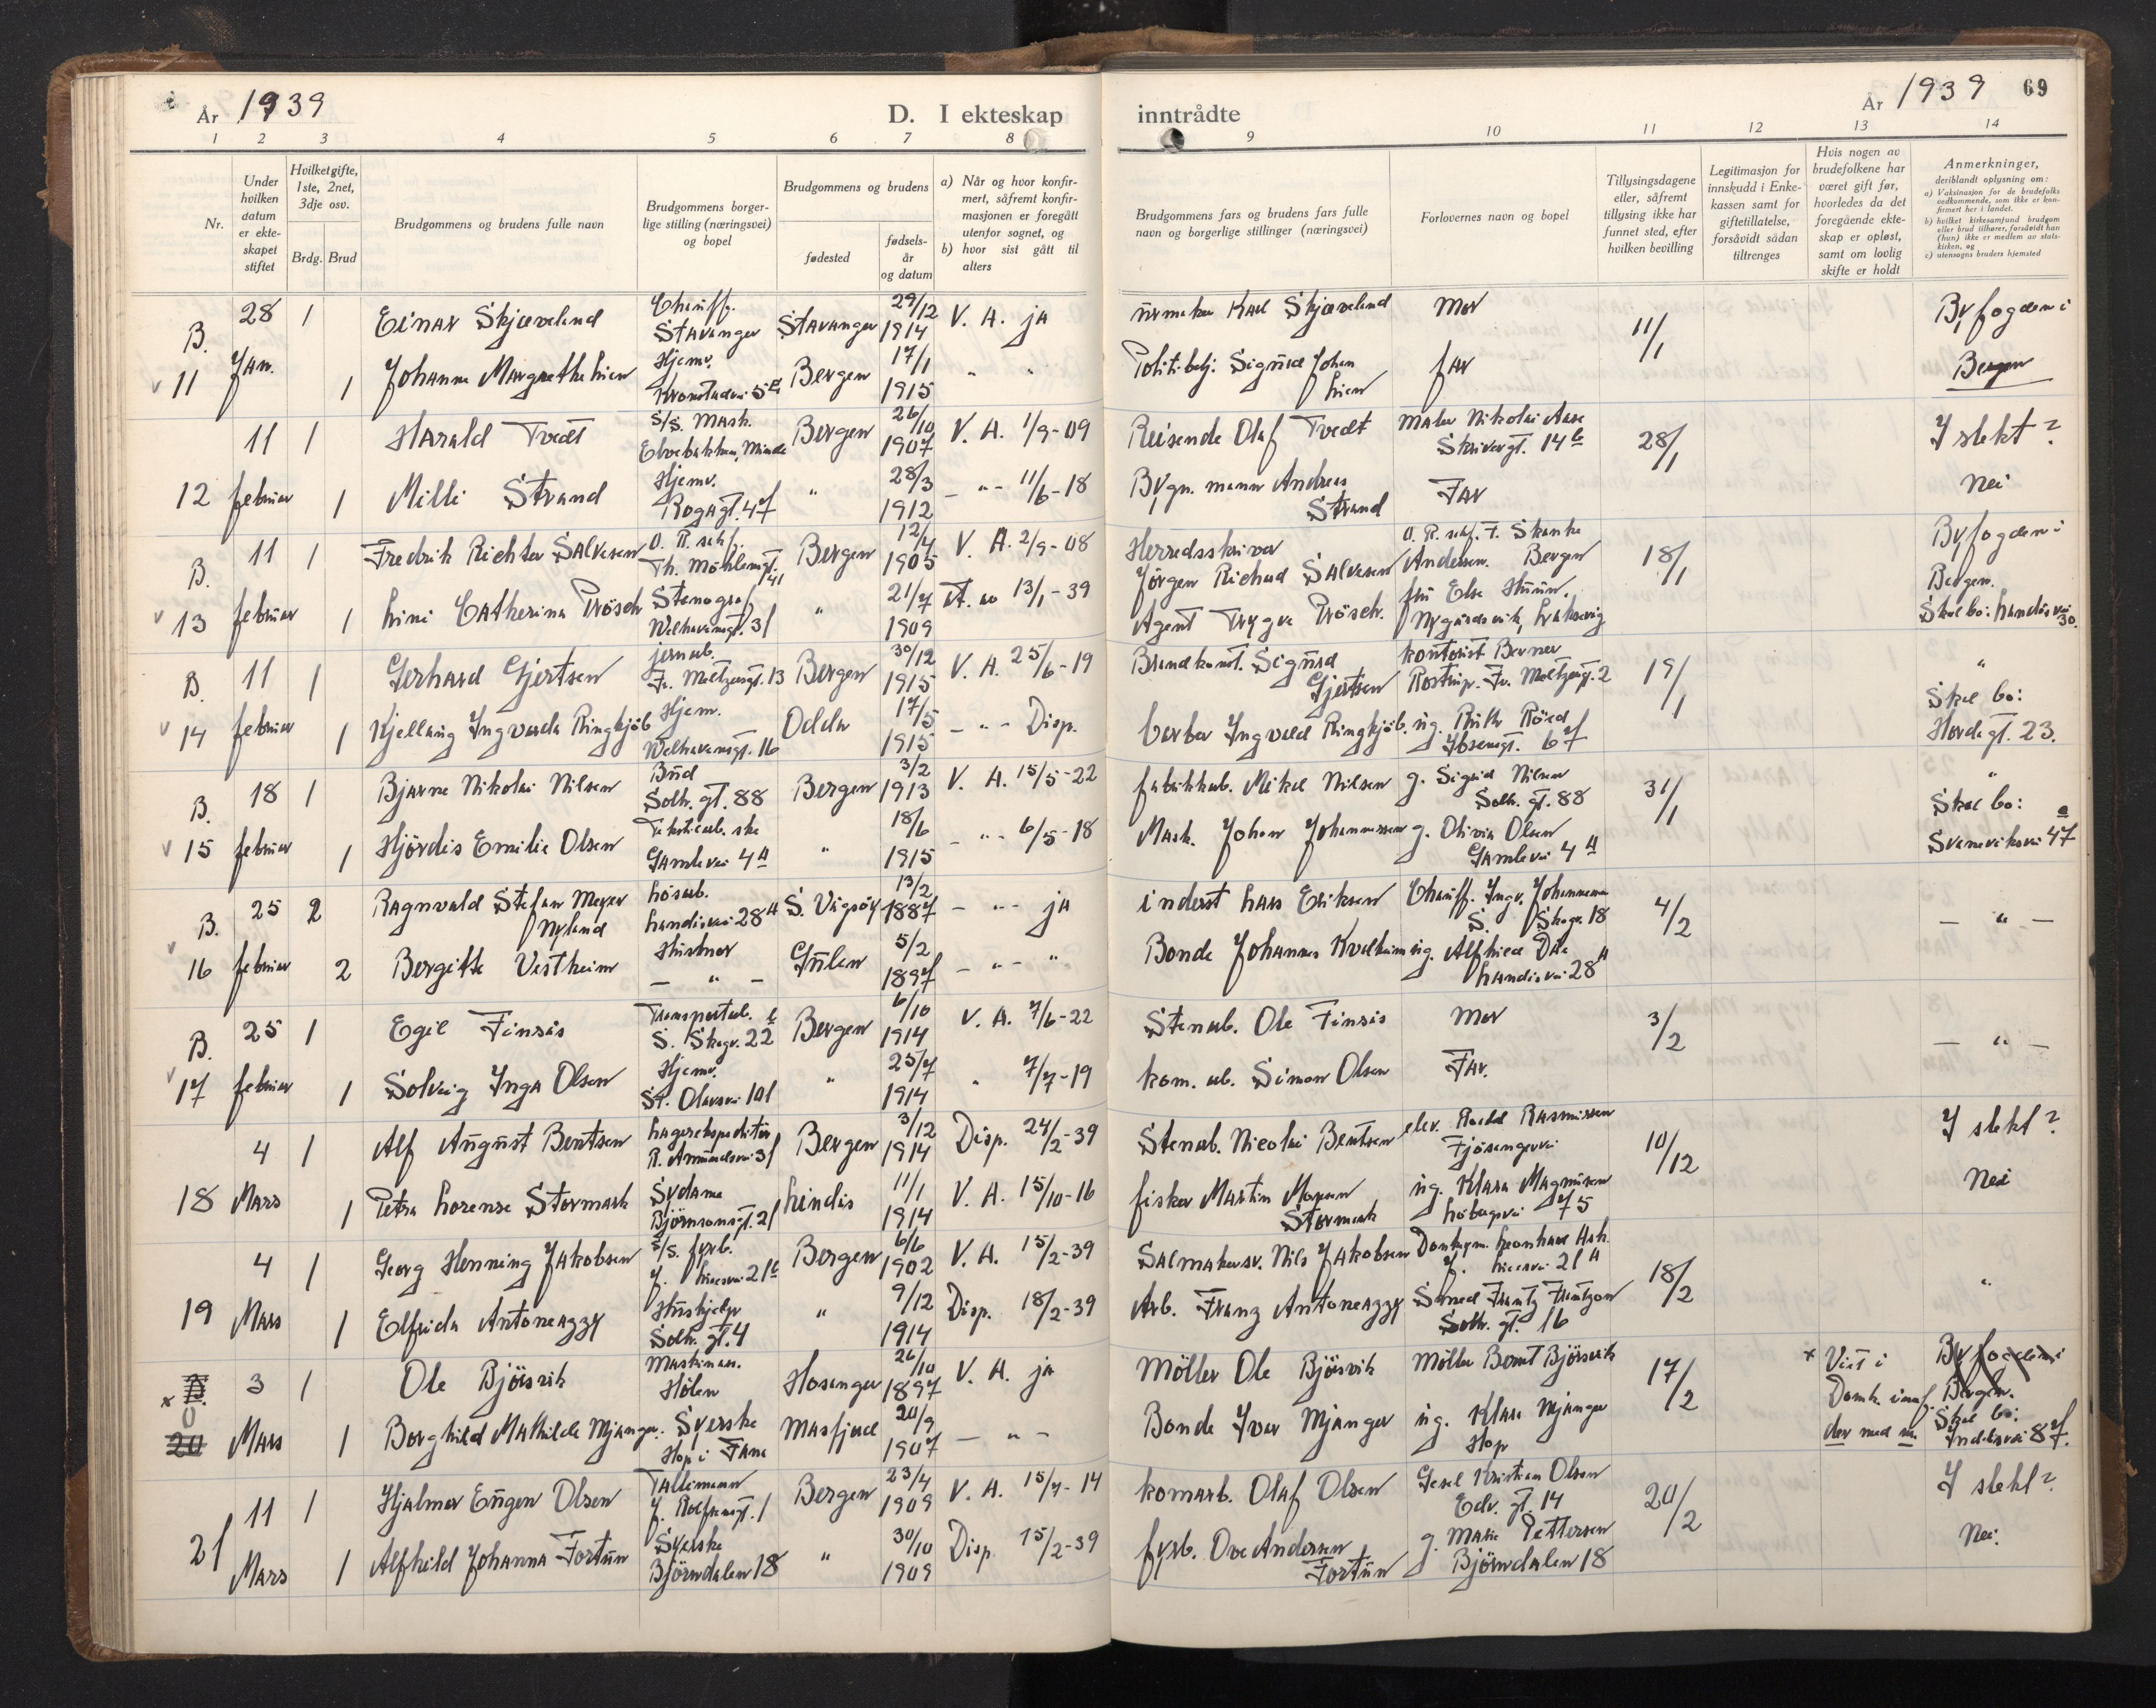 År 1939
D. I ekteskap
inntrådte
År 1939
69
1 2 3 4 5 6 7 8
9 10 11 12 13 14
Nr.
Under
hvilken
datum
er ekte-
skapet
stiftet
Hvilket gifte,
1ste, 2net,
3dje osv.
Brdg. Brud
Brudgommens og brudens fulle navn
Brudgommens borger-
lige stilling (næringsvei)
og bopel
Brudgommens og brudens
fødested
fødsels-
år
og datum
a) Når og hvor konfir-
mert, såfremt konfir-
masjonen er foregått
utenfor sognet, og
b) hvor sist gått til
alters
Brudgommens fars og brudens fars fulle
navn og borgerlige stillinger (næringsvei)
Forlovernes navn og bopel
Tillysingsdagene
eller, såfremt
tillysing ikke har
funnet sted, efter
hvilken bevilling
Legitimasjon for
innskudd i Enke-
kassen samt for
giftetillatelse,
forsåvidt sådan
tiltrenges
Hvis nogen av
brudefolkene har
været gift før,
hvorledes da det
foregående ekte-
skap er opløst,
samt om lovlig
skifte er holdt
Anmerkninger,
deriblandt oplysning om:
a) Vaksinasjon for de brudefolks
vedkommende, som ikke er kon-
firmert her i landet.
b) hvilket kirkesamfund brudgom
eller brud tilhører, forsåvidt han
(hun) ikke er medlem av stats-
kirken, og
c) utensogns bruders hjemsted
B. 28 1 Einar Skjæveland Chauff. Stavanger Stavanger 29/12 1914 V. A. ja urmaker Karl Skjæveland Mor 11/1 Byfogden i
11 Jan. 1 Johanne Margrethe Lien Hjemv. Bergen 17/1 1915 " " Politibetj. Sigurd Johan Lien far Bergen
11 1 Harald Tvedt S/S. Mask. Bergen 26/10 1907 V. A. 1/9-09 Reisende Olaf Tvedt Maler Nikolai Aase Skrivergt. 14b 28/1 I slekt?
12 februar 1 Milli Strand Hjemv. Rogagt. 47 " 28/3 1912 - " - 11/6-18 Bygn. mann Andreas Strand Far Nei
B. 11 1 Fredrik Richter Salvesen O. R. sakf. Th. Möhlensgt. 41 Bergen 12/4 1905 V. A. 2/9-08 Herredsskriver Jörgen Richard Salvesen O. R. sakf. F. Skanke Andersen. Bergen 18/1 Byfogden i
13 februar 1 Lini Catherina Prösch Stenograf Welhavensgt. 31 " 21/7 1909 13/1-39 Agent Trygve Prösch. fru Else Huun, Nygårdsvik, Laksevåg Bergen. Skal bo: Landåsvei 30.
B. 11 1 Gerhard Gjertsen jernarb. Fr. Meltzersgt. 13 Bergen 30/12 1915 V. A. 25/6-19 Brandkonst. Sigurd Gjertsen kontorist Berner Rostrup. Fr. Meltzersgt. 2 19/1 "
14 februar 1 Kjellaug Ingvarda Ringkjöb Hjem. Welhavensgt. 16 Odda 17/5 1915 - " - Disp. barber Ingvald Ringkjöb. ug. Ruth Röed Ibsensgt. 67 Skal bo: Hordagt. 23.
B. 18 1 Bjarne Nikolai Nilsen Bud Solh. gt. 88 Bergen 3/2 1913 V. A. 15/5-22 fabrikkarb. Mikal Nilsen g. Sigrid Nilsen Solh. gt. 88 31/1 "
15 februar 1 Hjördis Emilie Olsen Tekstilarb. ske Gamlevei 4a " 18/6 1915 - " - 6/5-18 Mask. Johan Johannessen g. Olivia Olsen Gamlevei 4a Skal bo: Svaneviksvei 47a
B. 25 2 Ragnvald Stefan Meyer Nyland Løsarb. Landåsvei 28a S. Vågsöy 13/2 1887 - " - ja inderst Lars Eriksen Chauff. Ingv. Johannesen S. Skogv. 18 4/2 - " -
16 februar 2 Bergitte Vestheim Hustru - " - Gulen 5/2 1897 - " - " Bonde Johannes Kvalheim ug. Alfhild Landåsvei 28a
B. 25 1 Egil Finsås Transportarb. S. Skogv. 22b Bergen 6/10 1914 V. A. 7/6-22 Stenarb. Ole Finsås Mor 3/2 - " -
17 februar 1 Solveig Inga Olsen Hjemv. St. Olavsvei 101 " 25/7 1914 " 7/7-19 kom. arb. Simon Olsen Far.
4 1 Alf August Bentsen Lagerekspeditör R. Amundsensvei 31 Bergen 3/12 1914 Disp. 24/2-39 Stenarb. Nicolai Bentsen elev. Roald Rasmussen Fjösangervei 10/12 I slekt?
18 Mars 1 Petra Lorense Stormark Sydame Björnsonsgt. 21 Lindås 11/1 1914 V. A. 15/10-16 fisker Martin Stormark ug. Klara Magnussen Løbergsvei 75 Nei
4 1 Georg Henning Jakobsen S/S. fyrb. 21b Bergen 6/6 1902 V. A. 15/2-39 Salmakersv. Nils Jakobsen Donkeym. Leonhard Ask. 21a 18/2
19 Mars 1 Elfrida Antoneazzy Hushjelp Solh. gt. 4 " 9/12 1914 Disp. 18/2-39 Arb. Franz Antoneazzy Smed Frantz Frantzon Solh. gt. 16 "
x B. 3 1 Ole Björsvik Maskinarb. Hølen Hosanger 26/10 1897 V. A. ja Möller Ole Björsvik Möller Bernt Björsvik 17/2 x Viet i Byfogden i
0 20 Mars 1 Borghild Mathilde Mjanger. Syerske Hop i Fana Masfjord 20/9 1907 - " - Bonde Iver Mjanger ug. Klara Mjanger Hop Domk. Bergen. Skal bo: 87.
11 1 Hjalmar Eugen Olsen Tallemann J. Rolfsensgt. 1 Bergen 23/4 1909 V. A. 15/7-14 komarb. Olaf Olsen Gesel Kristian Olsen Edv. gt. 14 20/2 I slekt?
21 Mars 1 Alfhild Johanna Fortun Syerske Björndalen 18 " 30/10 1909 Disp. 15/2-39 fyrb. Ove Andersen Fortun g. Marie Pettersen Björndalen 18 Nei.